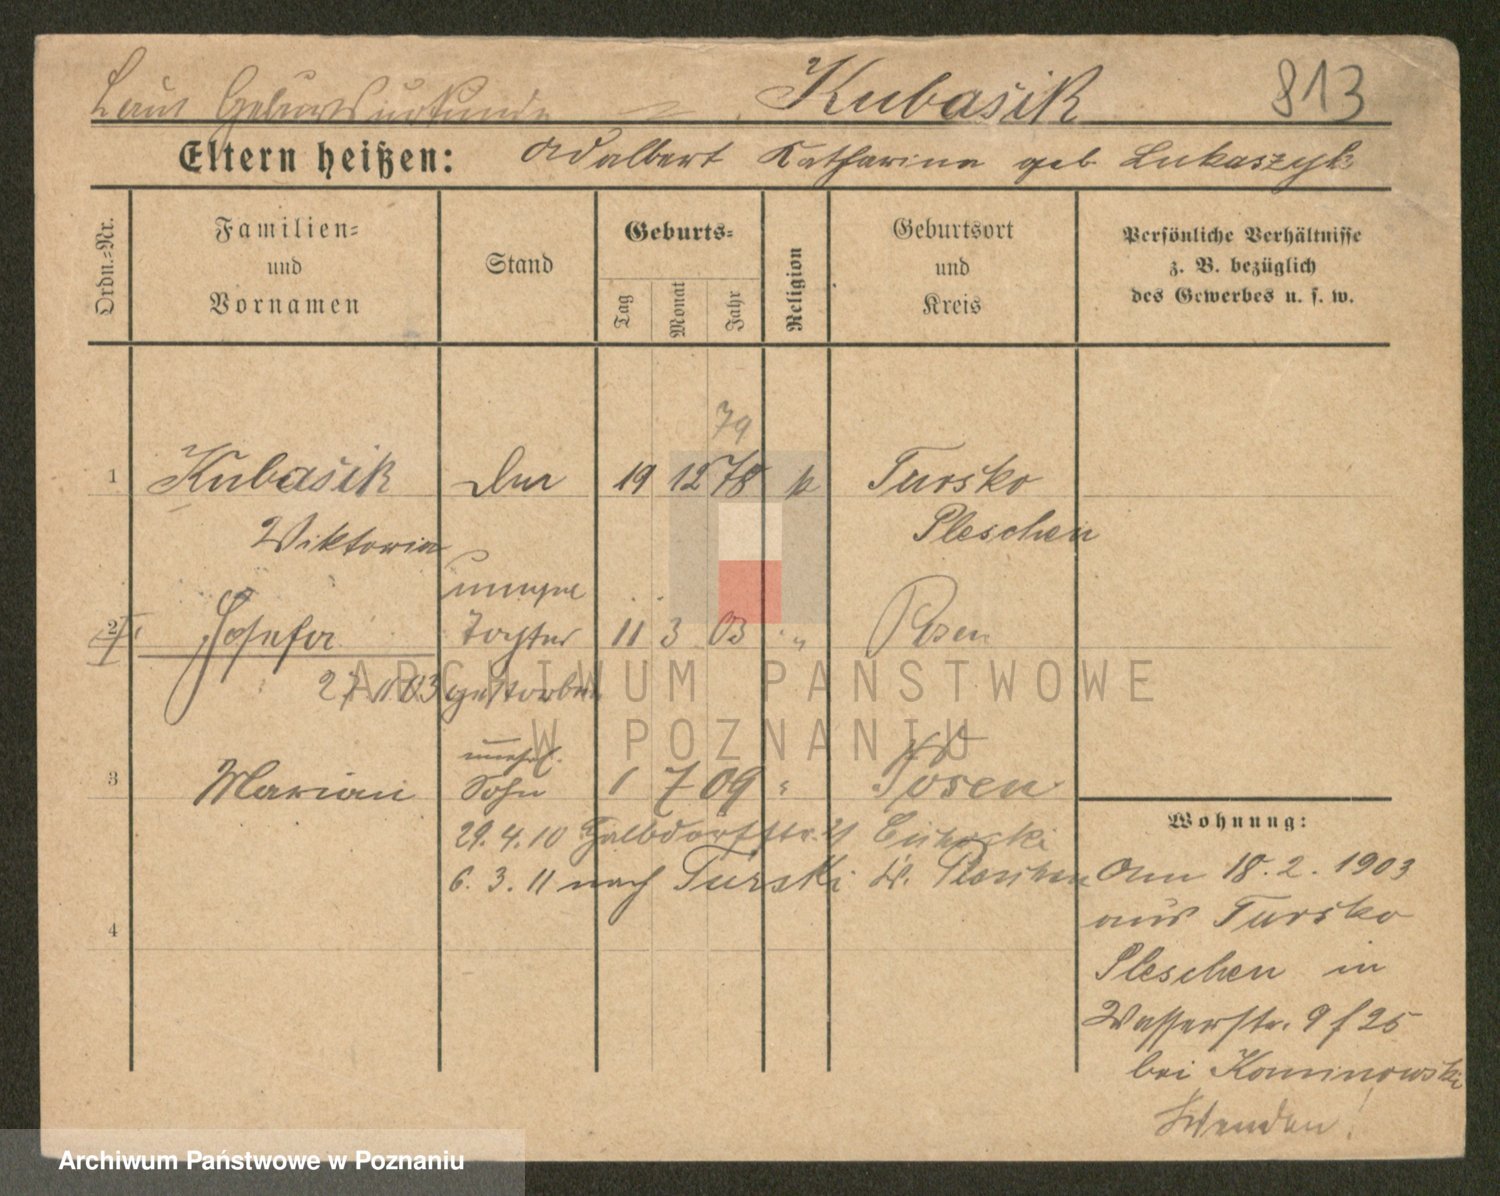 Laut Geburtsurkunde Kubasik 813
Eltern heißen: Adalbert Katharina geb Lukaszyk
Ordn.-Nr.
Familien- und Vornamen
Stand
Geburts-
Tag
Monat
Jahr
Religion
Geburtsort und Kreis
Persönliche Verhältnisse
z. B. bezüglich
des Gewerbes u. s. w.
79
1 Kubasik 19 12 78 k Tursko
Wiktoria Pleschen
2 Josefa Tochter 11 3 03 " Posen
03 gestorben
unehel.
3 Marian Sohn 1 7 09 " Posen
29.4.10
6.3.11 nach Turski Kr. Pleschen
4
Wohnung:
Am 18.2.1903
aus Tursko
Pleschen in
Wasserstr. 9 f 25
bei Kominowski
Wenden!
ARCHIWUM PAŃSTWOWE
W POZNANIU
Archiwum Państwowe w Poznaniu